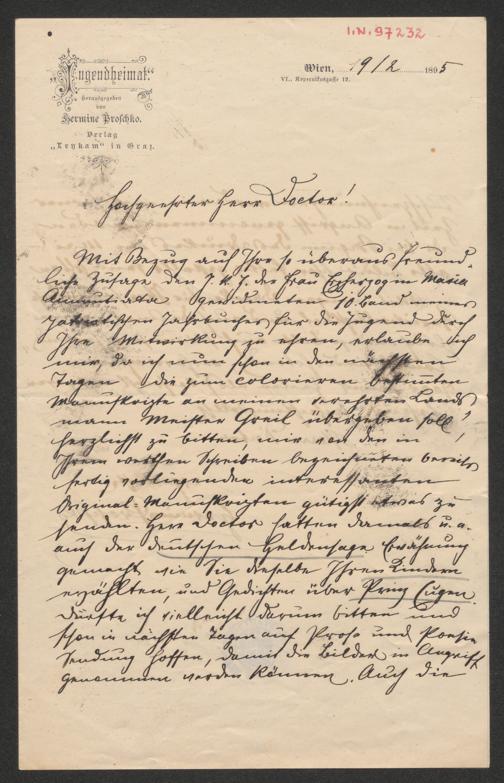 I.N. 97232
„Jugendheimat“
Herausgegeben
von
Hermine Proschko.
Verlag
„Leykam“ in Graz.
Wien, 19/2 1895
VI., Regerstgasse 12.
Hochgeehrter Herr Doctor!
Mit Bezug auf Ihre so überaus freund-
liche Zusage den I. k. H. der Frau Erzherzogin Maria
Annunziata gewidmeten 10. Band meines
patriotischen Jahrbuches für die Jugend durch
Ihre Mitwirkung zu ehren, erlaube ich
mir, da ich nun schon in den nächsten
Tagen die zum colorieren bestimmten
Manuskripte an meinen verehrten Lands
mann Meister Greil übergeben soll!
herzlichst zu bitten, mir von den in
Ihrem werthen Schreiben bezeichneten bereits
fertig vorliegenden interessanten
Original-Manuskripten gütigst etwas zu
senden. Herr Doctor hatten damals u. a.
auch der deutschen Heldensage Erwähnung
gemacht, wie Sie dieselbe Ihren Kindern
erzählten, und Gedichten über Prinz Eugen.
Dürfte ich vielleicht darum bitten und
schon in nächsten Tagen auf Prosa und Poesie
Sendung hoffen, damit die Bilder in Angriff
genommen werden können. Auch die